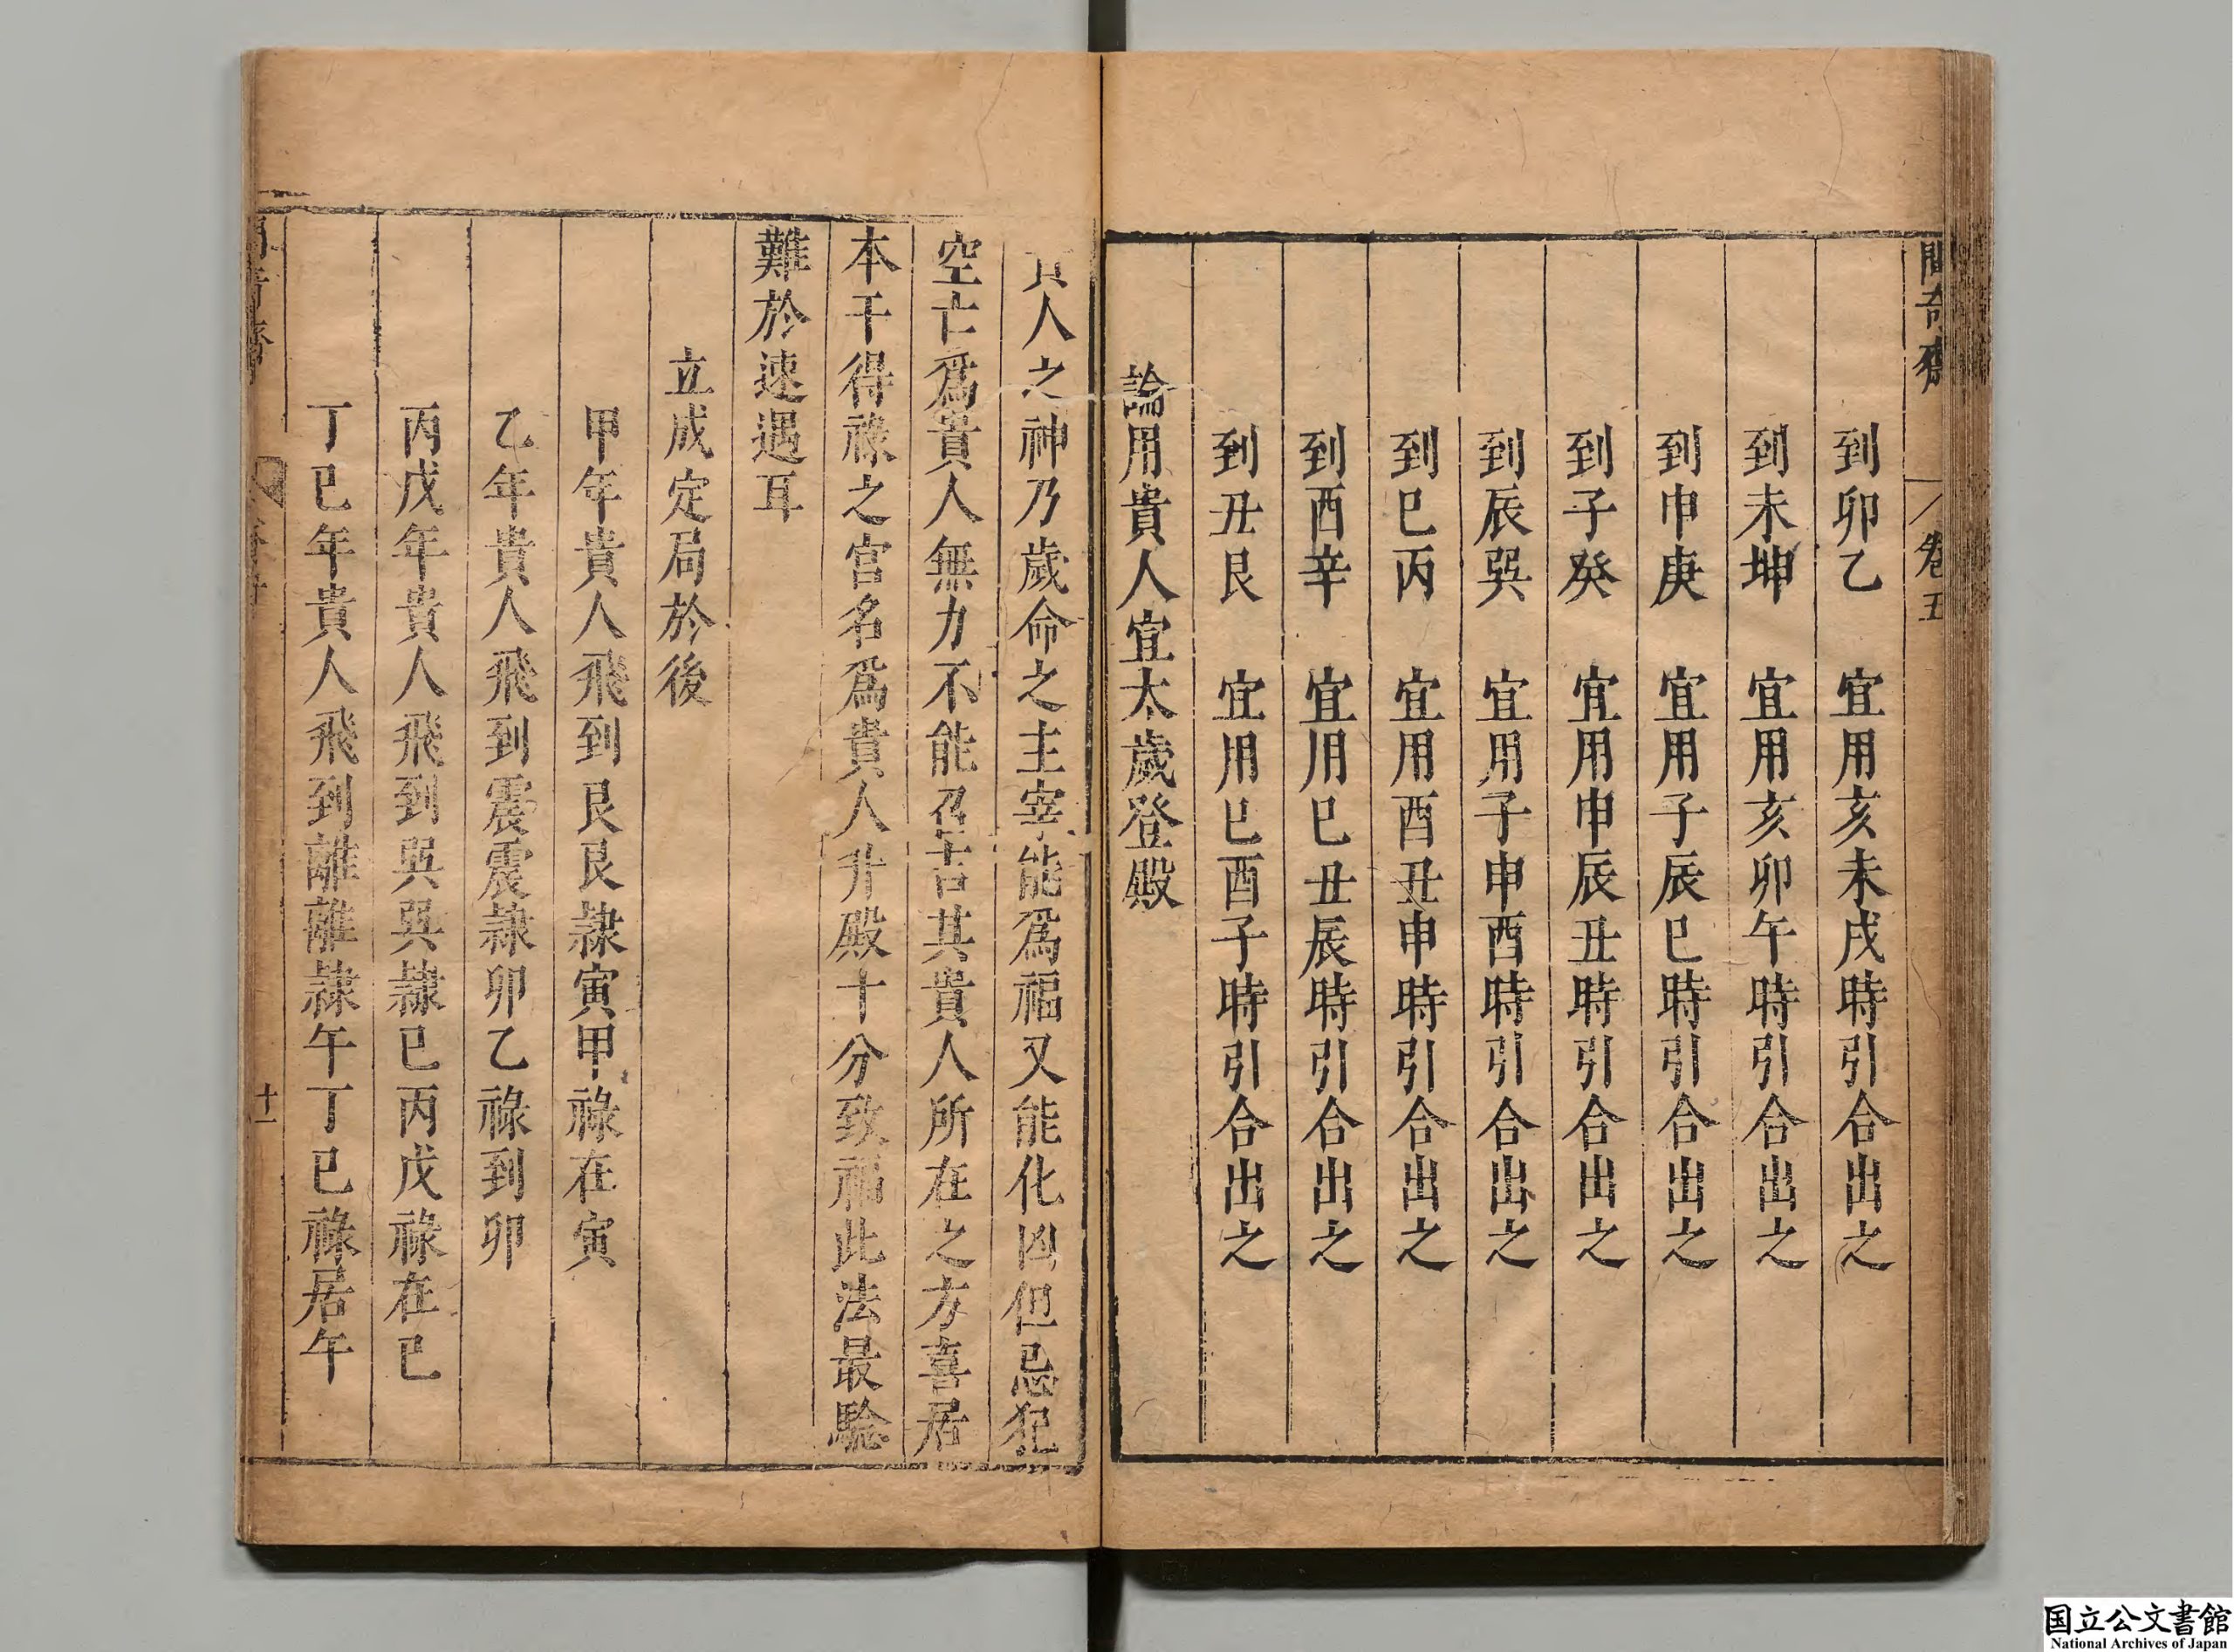 問奇齋 卷五
到卯乙 宜用亥未戌時引合出之
到未坤 宜用亥卯午時引合出之
到申庚 宜用子辰巳時引合出之
到子癸 宜用申辰丑時引合出之
到辰巽 宜用子申酉時引合出之
到巳丙 宜用酉丑申時引合出之
到酉辛 宜用巳丑辰時引合出之
到丑艮 宜用巳酉子時引合出之
論用貴人宜太歲登殿
貴人之神乃歲命之主宰能爲福又能化凶但忌犯
空亡爲貴人無力不能召吉其貴人所在之方喜居
本干得祿之宮名爲貴人升殿十分致福此法最驗
難於速遇耳
立成定局於後
甲年貴人飛到艮艮隷寅甲祿在寅
乙年貴人飛到震震隷卯乙祿到卯
丙戊年貴人飛到巽巽隷巳丙戊祿在巳
丁己年貴人飛到離離隷午丁己祿居午
十一
国立公文書館
National Archives of Japan